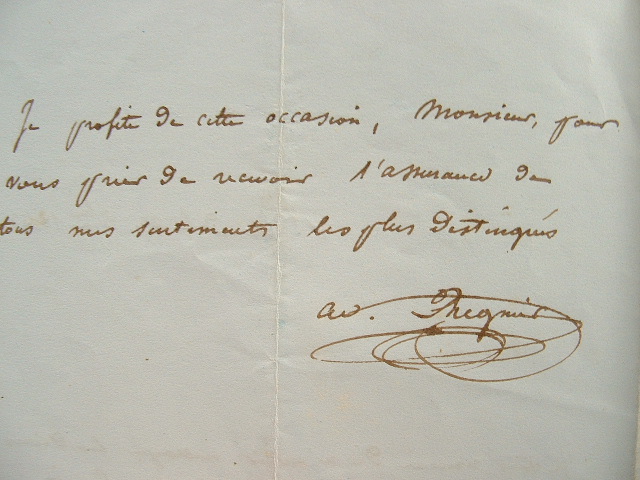 Je profite de cette occasion, Monsieur, pour
vous prier de recevoir l'assurance de
tous mes sentiments les plus distingués